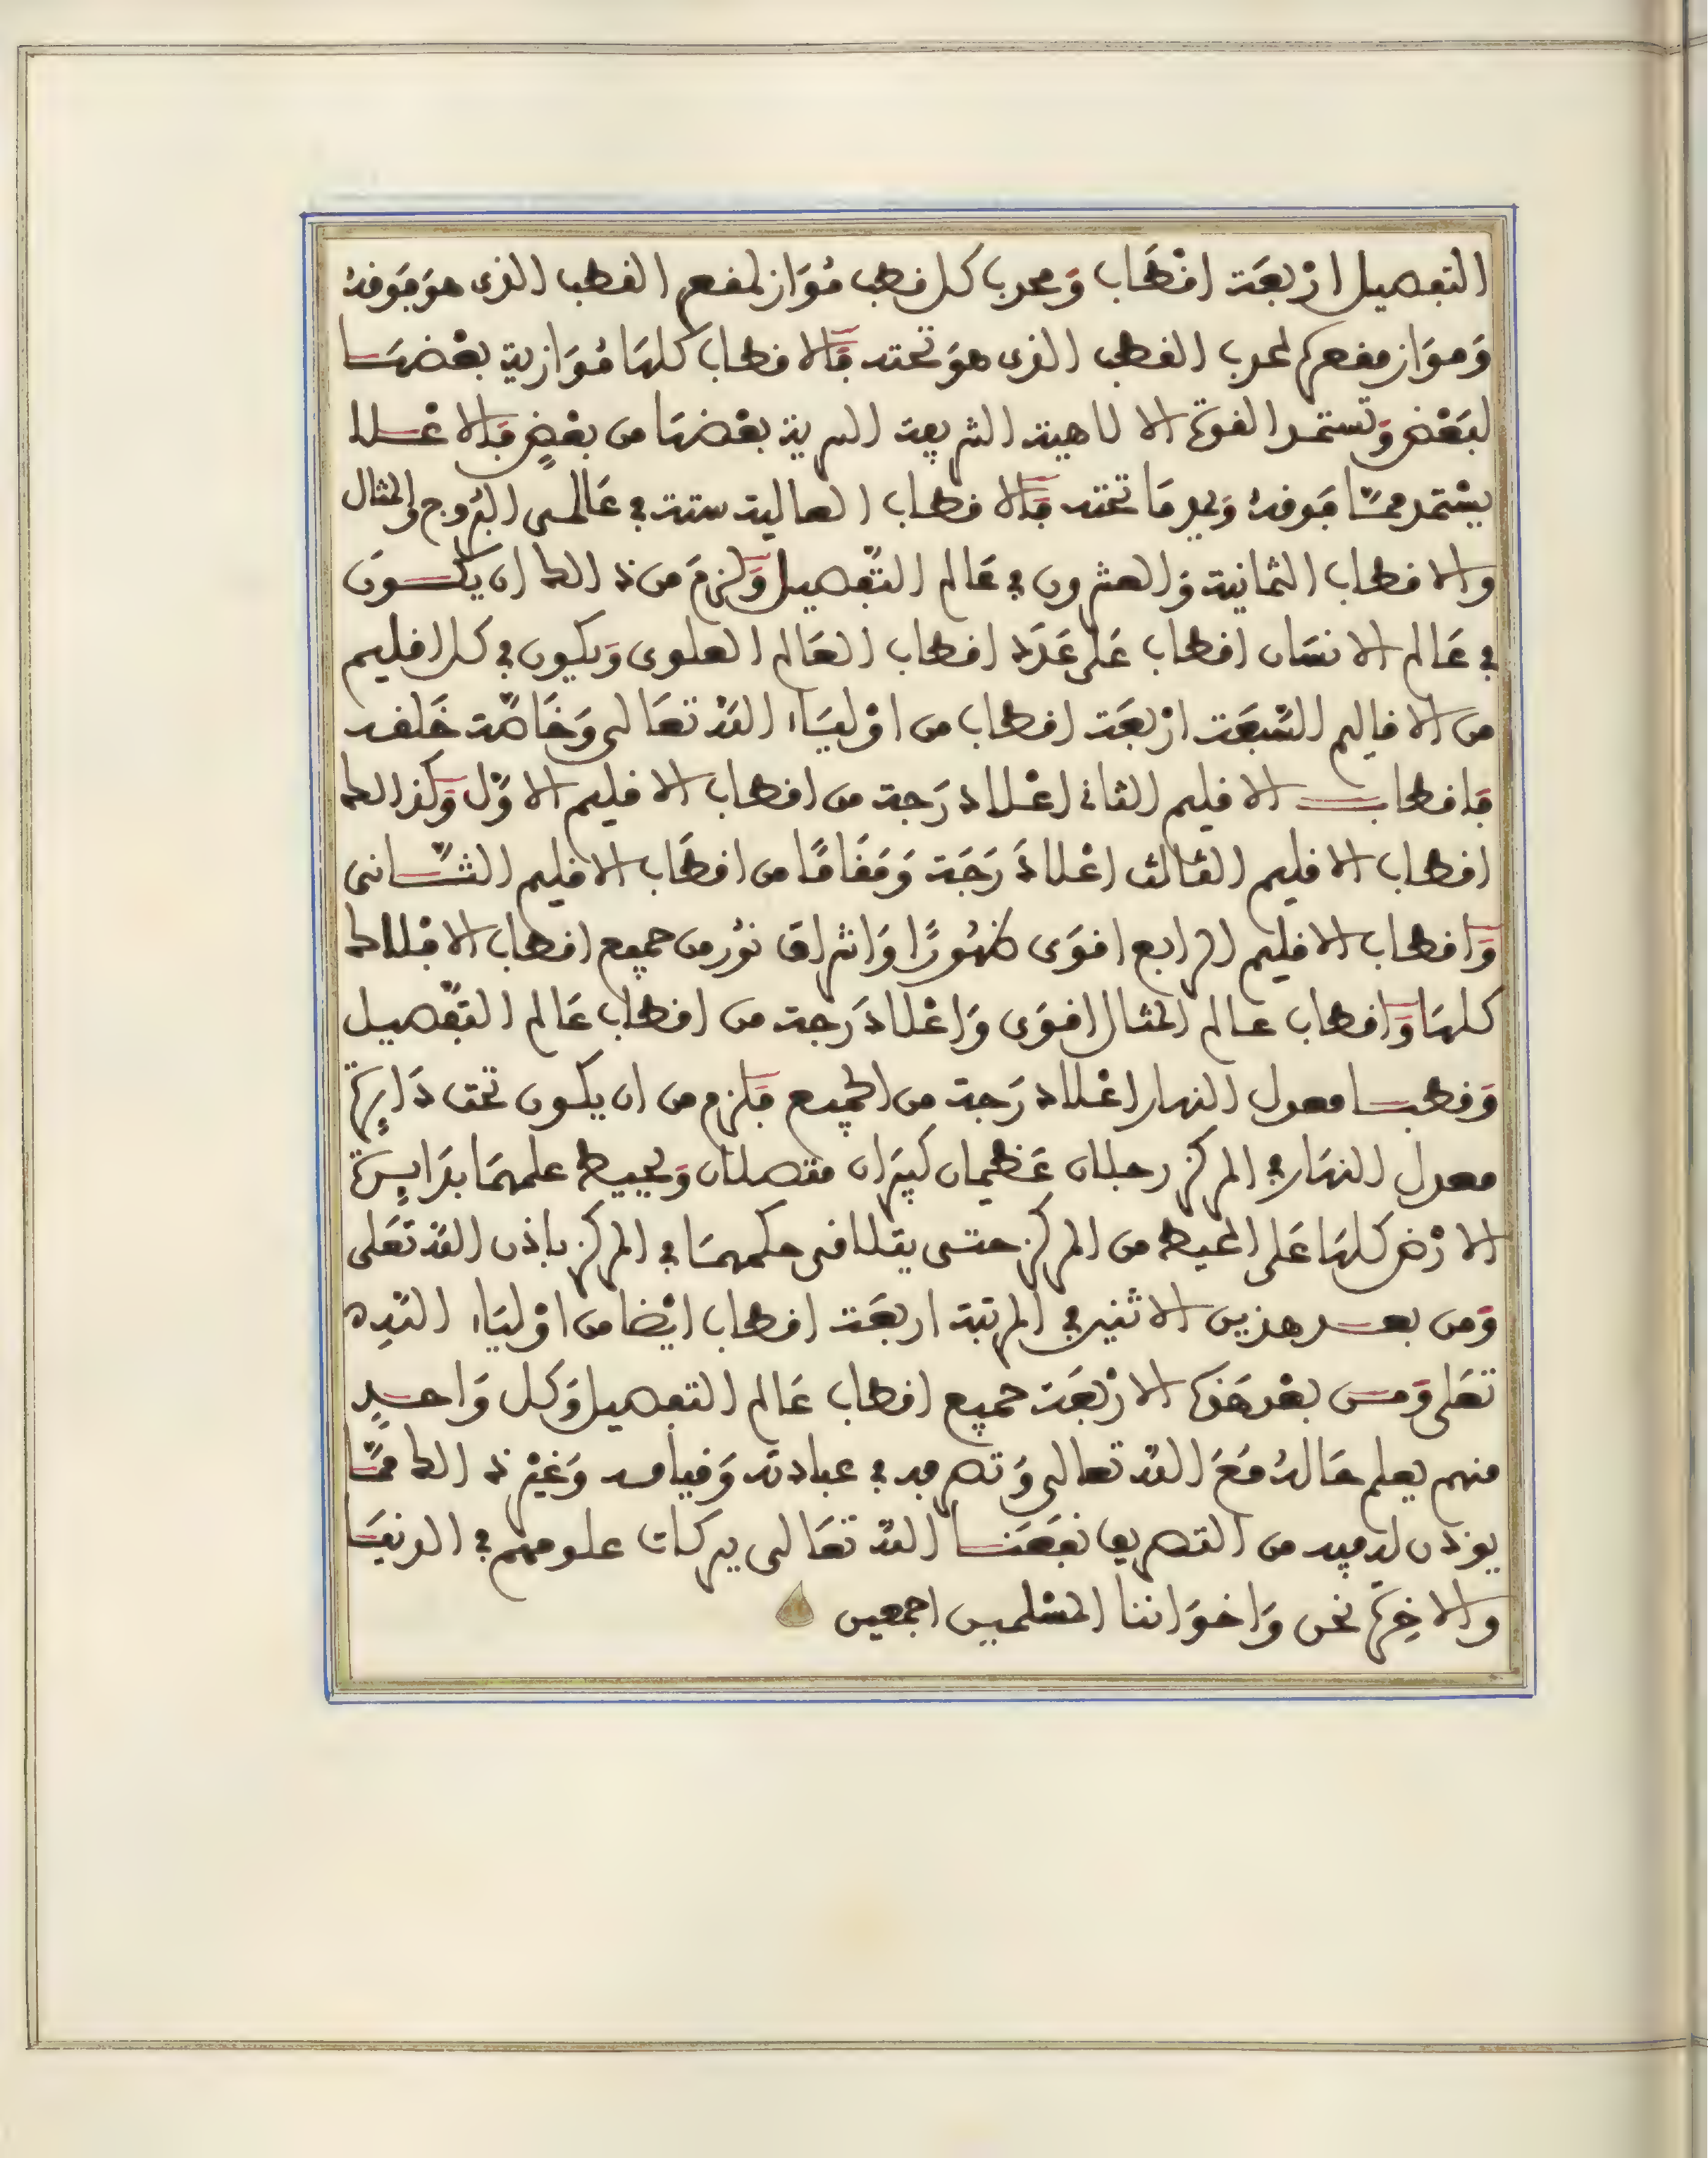 التفصيل أرْبعَة افْطَاب وَمحدب كل قطب مُوَاز لمقعر القطب الذى هوَ فَوقهُ
وَموَاز مقعره لمحدب القطب الذى هوَ تحته فَالاقطاب كلهَا مُوَازية بعْضهَا
لبَعْض وَتستمد القوة الالاهية الشريعة السرية بعْضهَا من بعْضٍ فَالاعْلا
يسْتمد ممَّا فَوقهُ وَيمد مَا تحْته فَالاقطاب العالية ستة في عَالمى البُروج والمثال
والاقطاب الثمانية وَالعشرون في عَالم التَّفصيل وَلزمَ من ذالك ان يكون
في عَالم الانسَان اقطاب عَلى عَدَد اقطاب العَالم العلوى وَيكون في كل اقليم
من الاقاليم السَّبعَة ارْبعَة اقطاب من اوْليَاء اللهْ تعَالى وَخَاصَّة خَلقه
فاقطاب الاقليم الثانى اعْلا دَرَجة من اقطاب الاقليم الاوَّل وَكذالك
اقطاب الاقليم الثالث اعْلا دَرَجَة وَمَقَامًا من اقطَاب الاقليم الثَّانى
وَاقطاب الاقليم الرابع اقوَى ظهُورًا وَاشراق نوُر من جميع اقطاب الافْلاك
كلهَا وَاقطاب عالم المثال اقوَى وَاعْلا دَرَجة من اقطاب عَالم التَّفصيل
وَقطبا معدل النهار اعْلا دَرَجة من الجميع فَلزم من ان يكون تحت دَايِرة
معدل النهَار في المركز رجلان عَظيمان كبيَران متصلان وَيحيط علمهمَا بدَايِرة
الارْض كلهَا عَلى المحيط من المركز حتى يتلاقى حكمهمَا في المركز باذن اللهْ تعَلى
وَمن بعد هذين الاثنين في المرتبة اربعَة اقطاب ايْضا من اوْليَاء اللهِ
تعَلى وَمن بعْد هَذه الارْبعَة جميع اقطاب عَالم التفصيل وَكل وَاحدٍ
منهم يعلم حَالهُ مَعَ اللهْ تعالى وَتصرفه في عبادته وَقيامه وَغيْر ذالك ممَّا
يوذن له فيه من التصريف نفَعَنا اللهْ تعَالى ببركات علومهم في الدنيَا
والاخِرَة نحن وَاخوَاننا المسْلمين اجمعين